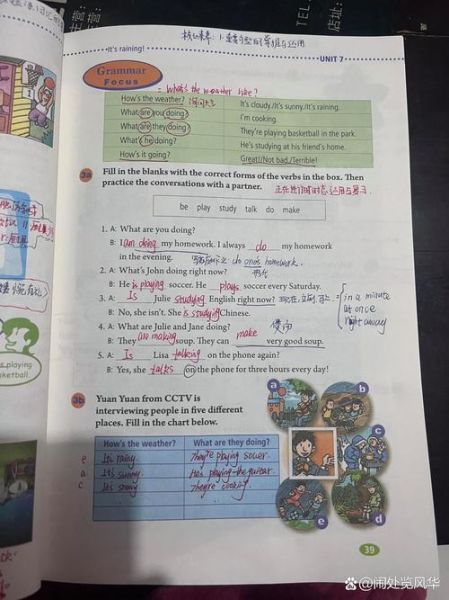 It's raining!
UNIT 7
Grammar
Focus
= What's the weather like?
How's the weather? It's cloudy./It's sunny./It's raining.
What are you doing? I'm cooking.
What are they doing? They're playing basketball in the park.
What's he doing? He's studying at his friend's home.
How's it going? Great!/Not bad./Terrible!
3a Fill in the blanks with the correct forms of the verbs in the box. Then
practice the conversations with a partner.
be play study talk do make
1. A: What are you doing?
B: I am doing my homework. I always do my homework
in the evening. do one's homework.
2. A: What's John doing right now?
B: He is playing soccer. He plays soccer every Saturday.
3. A: Is Julie studying English right now?
in a minute
at once
right away
B: No, she isn't. She is studying Chinese.
4. A: What are Julie and Jane doing?
B: They are making soup. They can make very good soup.
5. A: Is Lisa talking on the phone again?
B: Yes, she talks on the phone for three hours every day!
3b Yuan Yuan from CCTV is
interviewing people in five different
places. Fill in the chart below.
a
b
c
d
e
How's the weather? What are they doing?
e It's rainy. They're playing soccer.
a It's sunny. He's playing the guitar.
c It's snowy. They're cooking.
39
is playing
basketball.
@闹处览风华